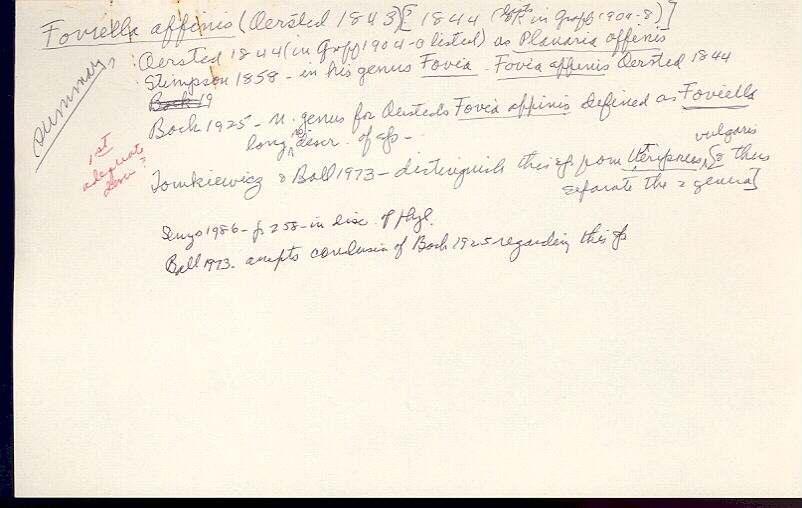 Foviella affinis (Oersted 1843)[ 1844 ( in Graff 1904-8)]
summary
Oersted 1844 (in Graff 1904-8 listed) as Planaria affinis
Stimpson 1858 - in his genus Fovia. Fovia affinis Oersted 1844
Bock 19
Bock 1925 - n. genus for Oersted's Fovia affinis defined as Foviella
long descr. of sp -
1st adequate descr?
Tomkiewicz & Ball 1973 - distinguish this sp from Uteriporus vulgaris [& thus
separate the 2 genera]
Sluys 1986 - p 258 - in disc. of Phyl.
Ball 1973 - accepts conclusion of Bock 1925 regarding this sp